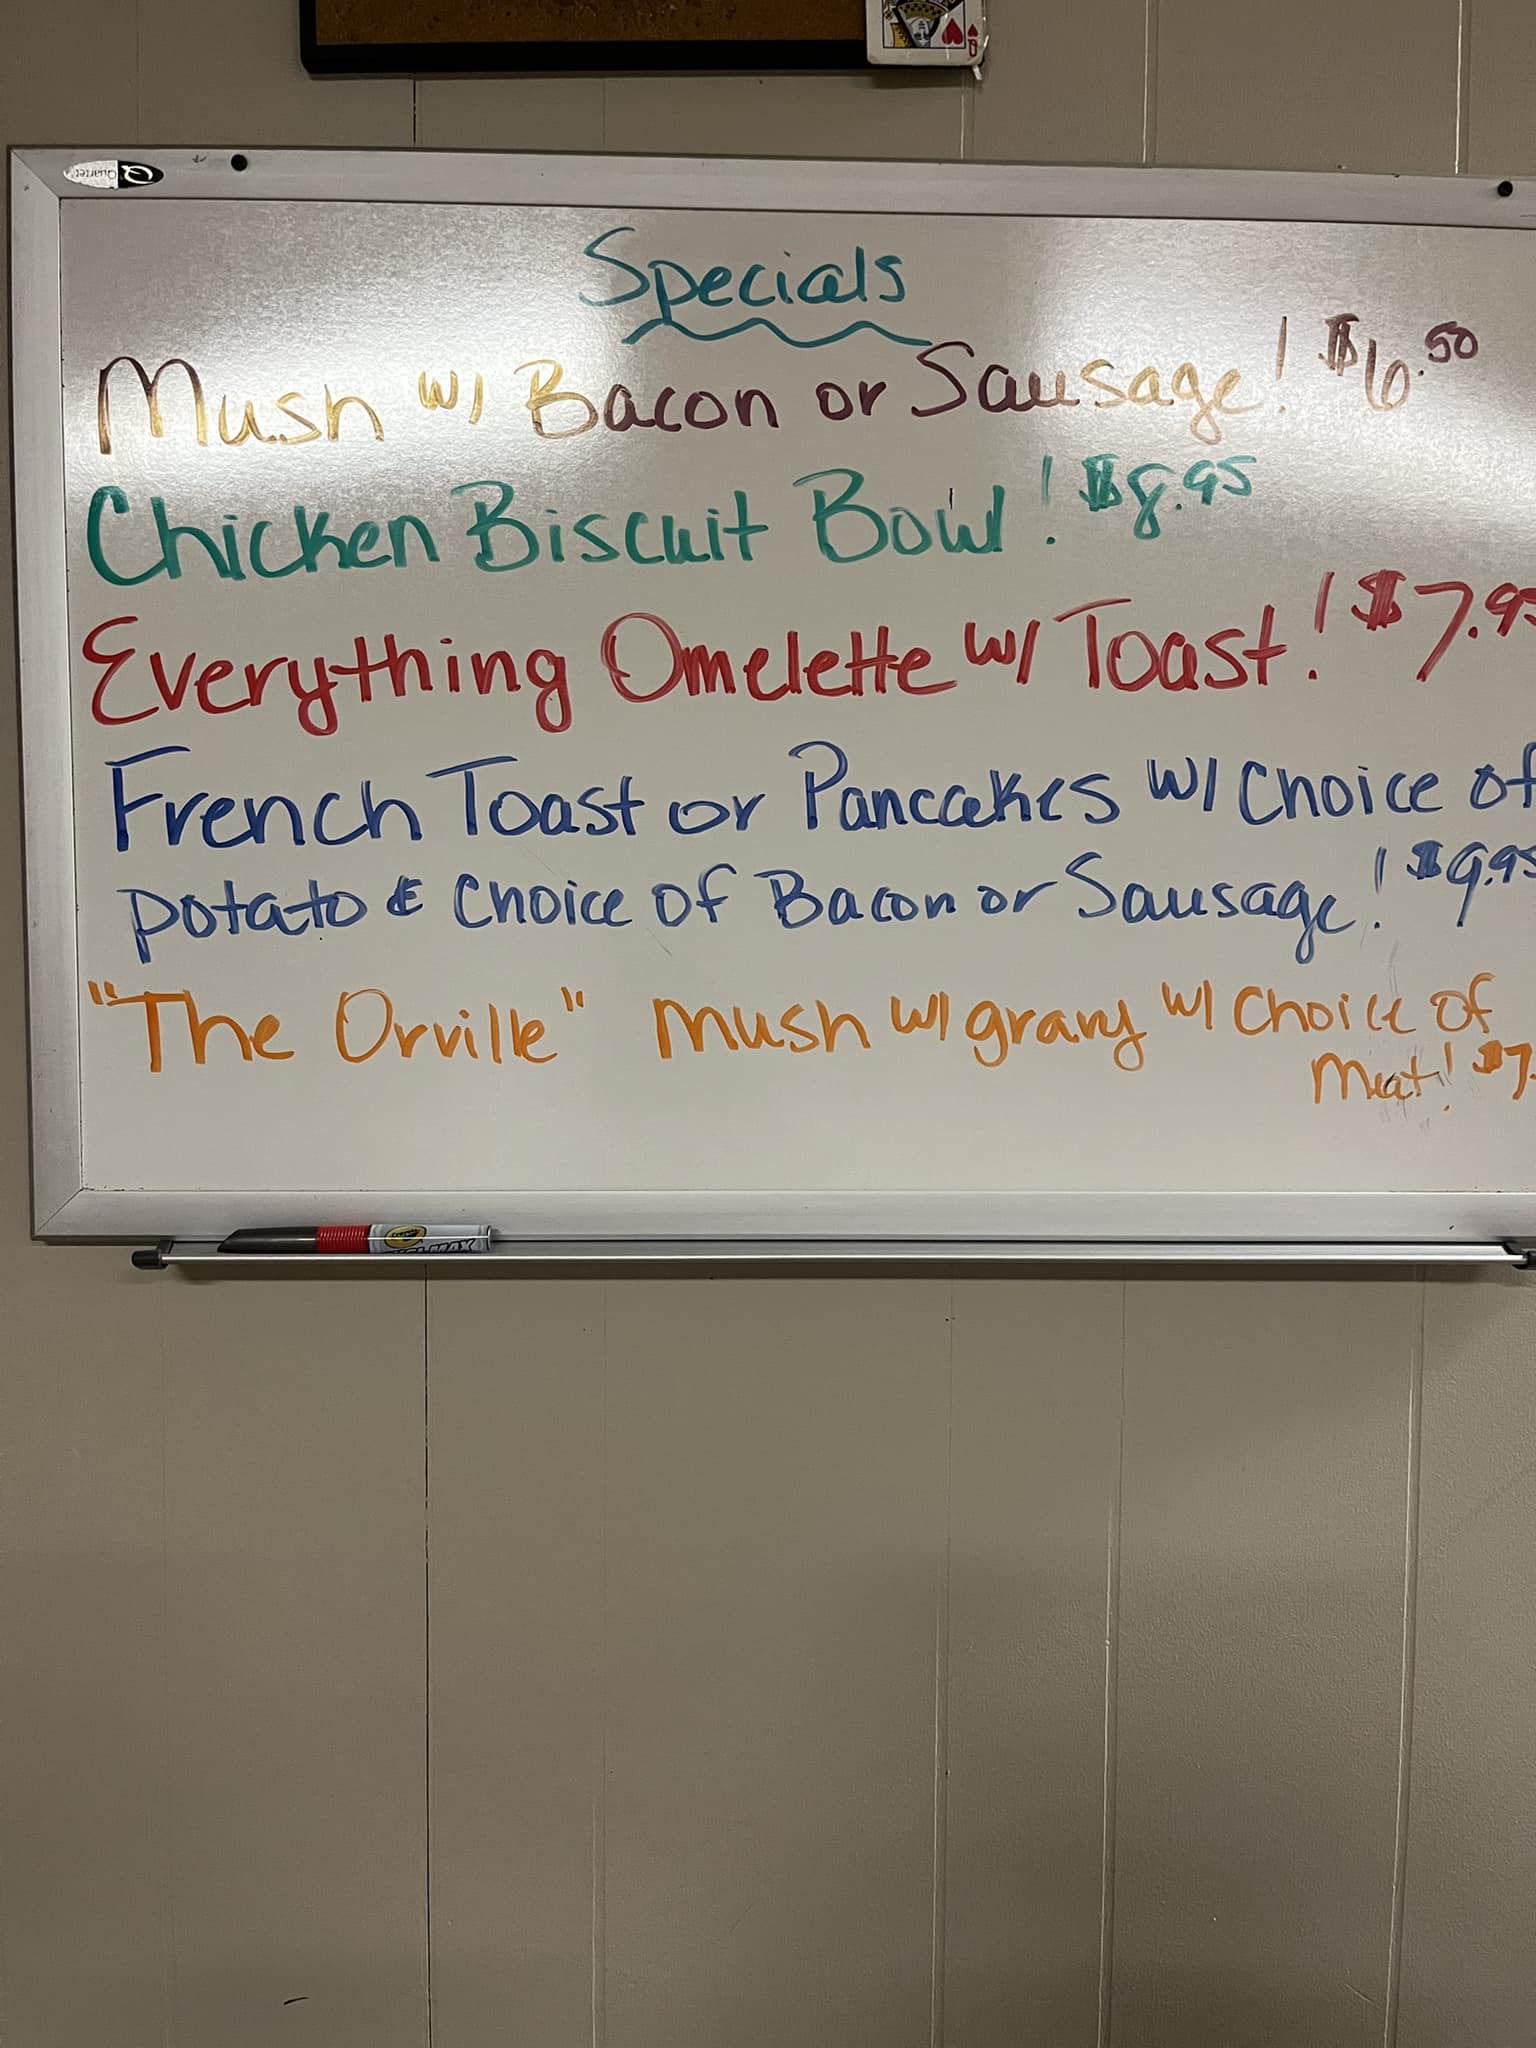 Q
Quartet
Specials
Mush w/ Bacon or Sausage! $6.50
Chicken Biscuit Bowl! $8.95
Everything Omelette w/ Toast! $7.95
French Toast or Pancakes w/ Choice of
potato & Choice of Bacon or Sausage! $9.95
"The Orville" Mush w/ gravy w/ Choice of
Meat! $7.
Crayola